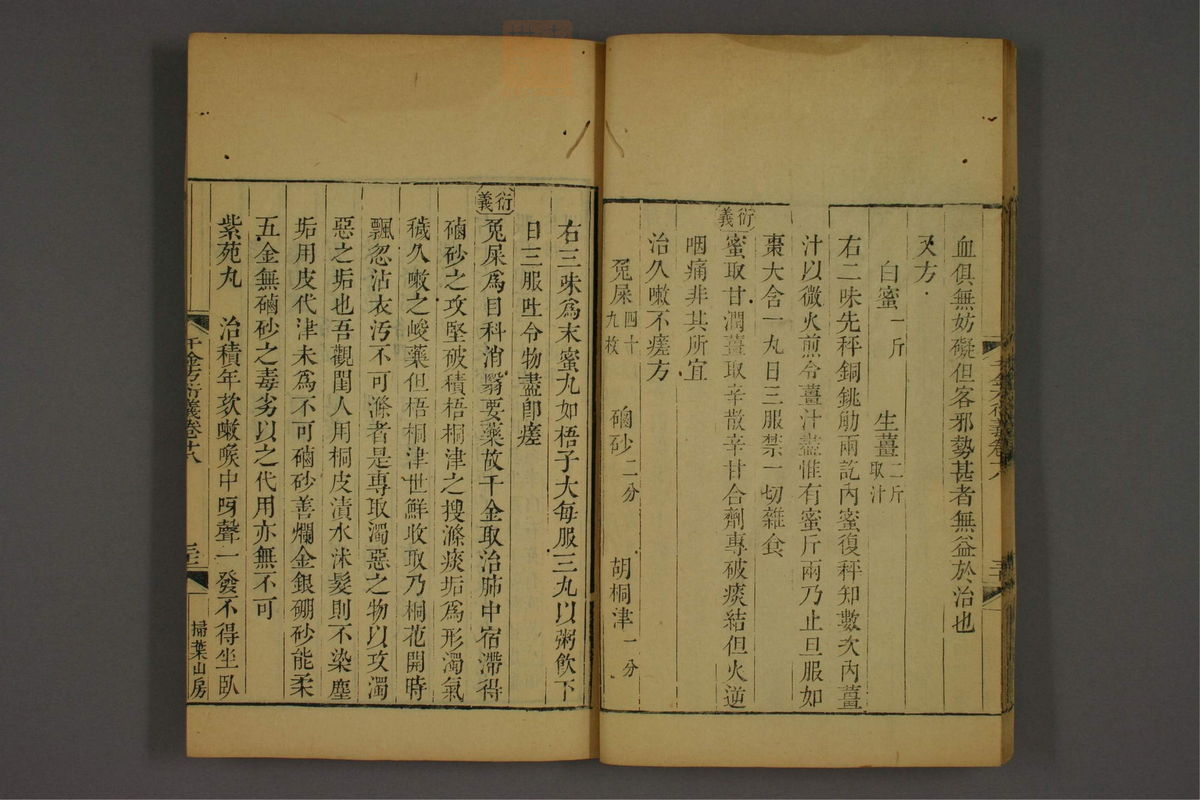 血俱無妨礙但客邪勢甚者無益於治也
又方
白蜜一斤 生薑二斤取汁
右二味先秤銅銚觔兩訖內蜜復秤知數次內薑
汁以微火煎令薑汁盡惟有蜜斤兩乃止旦服如
棗大含一丸日三服禁一切雜食
衍義
蜜取甘潤薑取辛散辛甘合劑專破痰結但火逆
咽痛非其所宜
治久嗽不瘥方
兔屎四十九枚 硇砂二分 胡桐津一分
右三味為末蜜丸如梧子大每服三丸以粥飲下
日三服吐令物盡卽瘥
衍義
兔屎爲目科消翳要藥故千金取治肺中宿滯得
硇砂之攻堅破積梧桐津之搜滌痰垢爲形濁氣
穢久嗽之峻藥但梧桐津世鮮收取乃桐花開時
飄忽沾衣汚不可滌者是專取濁惡之物以攻濁
惡之垢也吾觀閨人用桐皮漬水沐髮則不染塵
垢用皮代津未爲不可硇砂善爛金銀硼砂能柔
五金無硇砂之毒劣以之代用亦無不可
紫苑丸 治積年欬嗽喉中呀聲一發不得坐臥
千金方衍義卷十八
掃葉山房